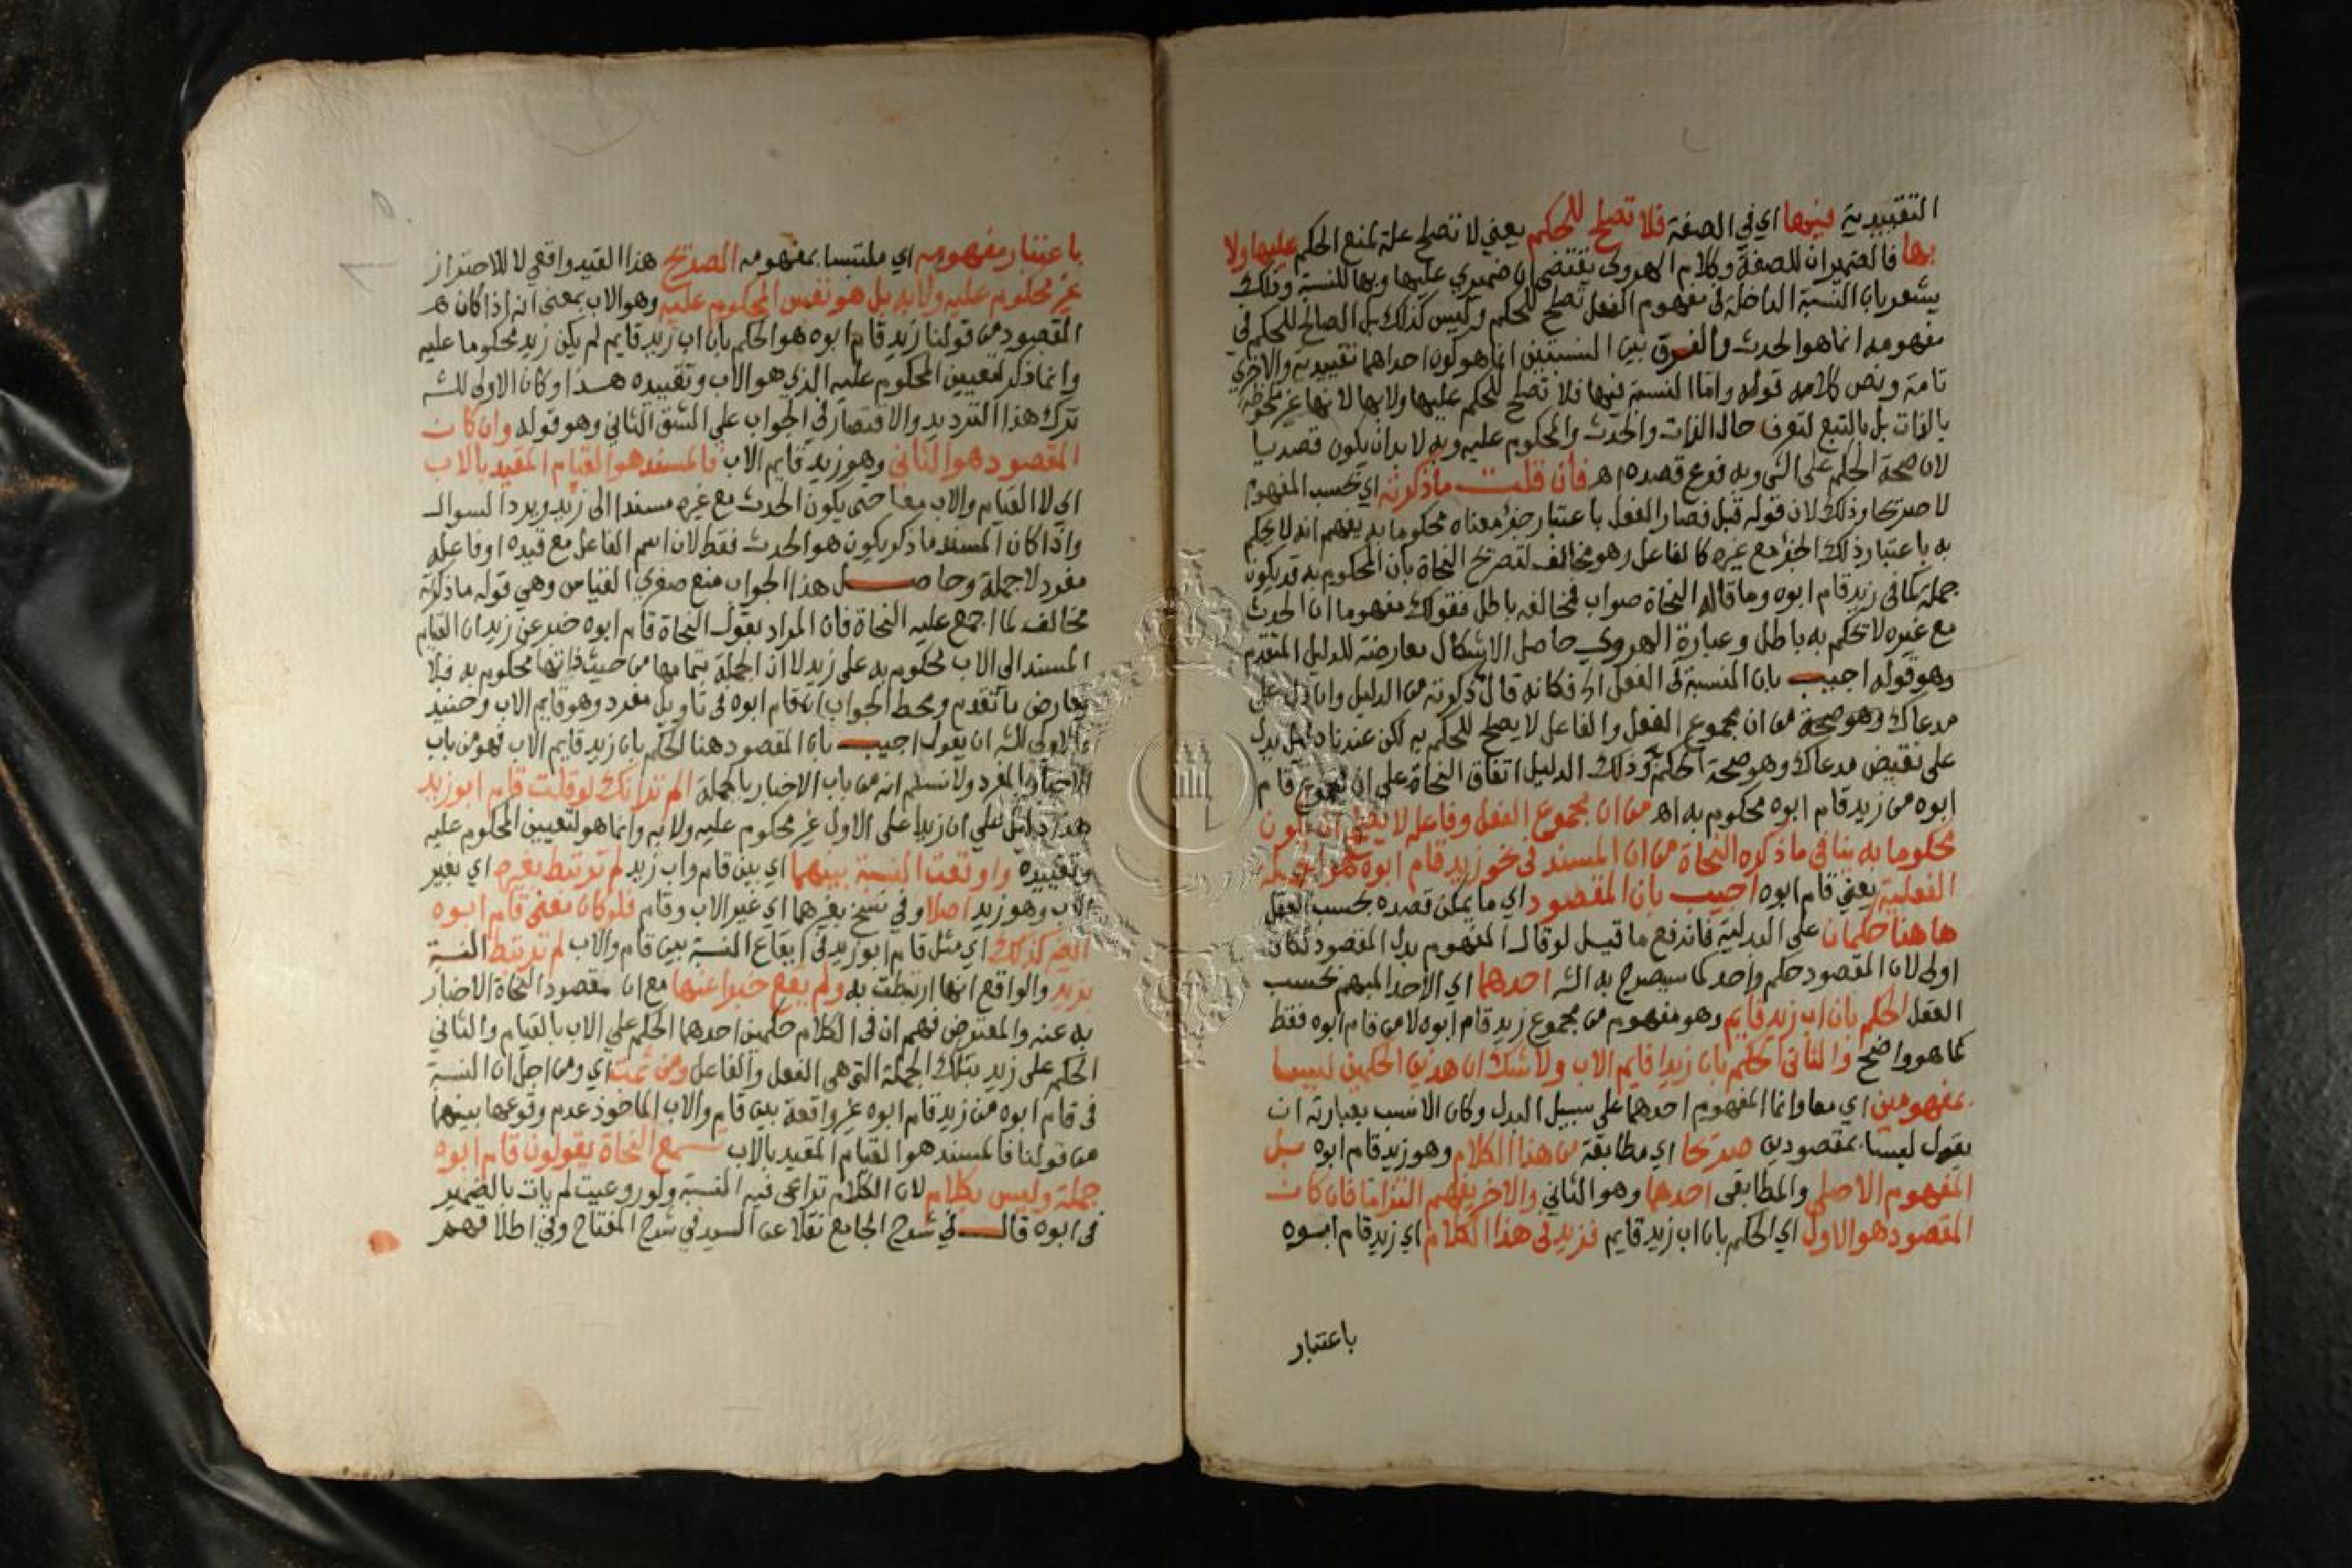 التقييدية فيها اي في الصفة فلا تصلح للحكم يعني لا تصلح علة لمنع الحكم عليها ولا
بها فالضميران للصفة وكلام الهروي يقتضي ان ضميري عليها وبها للنسبة وذلك
يشعر بان النسبة الداخلة في مفهوم الفعل تصلح للحكم وليس كذلك بل الصالح للحكم في
مفهومه انما هو الحدث والفرق بين النسبتين انما هو كون احداهما تقييدية والاخري
تامة ونص كلامه قوله واما النسبة فيها فلا تصلح للحكم عليها ولا بها لانها غير ملحوظة
بالذات بل بالتبع لتعرف حال الذات والحدث والمحكوم عليه وبه لا بد ان يكون قصديا
لان صحة الحكم على الشي وبه فرع قصده اهـ فان قلت ما ذكرته اي بحسب المفهوم
لا صريحا وذلك لان قوله قبل فصار الفعل باعتبار جزء معناه محكوما به يفهم انه لا يحكم
به باعتبار ذلك الجزء مع غيره كالفاعل وهو مخالف لتصريح النحاة بان المحكوم به قد يكون
جملة كما في زيد قام ابوه وما قاله النحاة صواب فمخالفه باطل فقولك مفهوما ان الحدث
مع غيره لا يحكم به باطل وعبارة الهروي حاصل الاشكال معارضة للدليل المتقدم
وهو قوله اجيب بان النسبة في الفعل الخ فكانه قال ذكرته من الدليل وان دل على
مدعاك وهو صحة من ان مجموع الفعل والفاعل لا يصلح للحكم به لكن عندنا دليل يدل
على نقيض مدعاك وهو صحة الحكم وذلك الدليل اتفاق النحاة على ان مجموع قام
ابوه من زيد قام ابوه محكوم به اهـ من ان مجموع الفعل وفاعله لا يصلح ان يكون
محكوما به ينافي ما ذكره النحاة من ان المسند في نحو زيد قام ابوه هو الجملة
الفعلية يعني قام ابوه اجيب بان المقصود اي ما يمكن قصده بحسب العقل
هاهنا حكمان على البدلية فاندفع ما قيل لو قال المفهوم بدل المقصود لكان
اولى لان المقصود حكم واحد كما سيصرح به الشـ احدهما اي الاحد المبهم بحسب
العقل الحكم بان اب زيد قايم وهو مفهوم من مجموع زيد قام ابوه لا من قام ابوه فقط
كما هو واضح والثاني الحكم بان زيدا قايم الاب ولا شك ان هذين الحكمين ليسا
بمفهومين اي معا وانما المفهوم احدهما على سبيل البدل وكان الانسب بعبارته ان
يقول ليسا بمقصودين صريحا اي مطابقة من هذا الكلام وهو زيد قام ابوه بل
المفهوم الاصلي والمطابقي احدهما وهو الثاني والاخر يفهم التزاما فان كان
المقصود هو الاول اي الحكم بان اب زيد قايم فزيد في هذا الكلام اي زيد قام ابوه
باعتبار
باعتبار مفهومه اي ملتبسا بمفهومه الصريح هذا القيد واقعي لا للاحتراز
غير محكوم عليه ولا به بل هو نفس المحكوم عليه وهو الاب بمعنى انه اذا كان هـ
المقصود من قولنا زيد قام ابوه هو الحكم بان اب زيد قايم لم يكن زيد محكوما عليه
وانما ذكر لتعيين المحكوم عليه الذي هو الاب وتقييده هـذا وكان الاولى للشـ
ترك هذا الترديد والاقتصار في الجواب على الشق الثاني وهو قوله وان كان
المقصود هو الثاني وهو زيد قايم الاب فالمسند هو القيام المقيد بالاب
اي لا القيام والاب معا حتى يكون الحدث مع غيره مسندا الى زيد ويرد السوال
واذا كان المسند ما ذكر يكون هو الحدث فقط لان اسم الفاعل مع قيده او فاعله
مفرد لا جملة وحاصـل هذا الجواب منع صغرى القياس وهي قوله ما ذكرته
مخالف لما اجمع عليه النحاة فان المراد بقول النحاة قام ابوه خبر عن زيد ان القيام
المسند الى الاب محكوم به على زيد لا ان الجملة بتمامها من حيث ذاتها محكوم به فلا
يعارض ما تقدم ومحط الجواب ان قام ابوه في تاويل مفرد وهو قايم الاب وحينيد
فالاولى للشـ ان يقول اجيب بان المقصود هنا الحكم بان زيد قايم الاب فهو من باب
الاخبار بالمفرد ولا نسلم انه من باب الاخبار بالجملة الم تر انك لو قلت قام ابو زيد
هذا دليل على ان زيدا على الاول غير محكوم عليه ولا به وانما هو لتعيين المحكوم عليه
وتقييده واوقعت النسبة بينهما اي بين قام واب زيد لم ترتبط بغيره اي بغير
الاب وهو زيد اصلا وفي نسخ بغيرهما اي غير الاب وقام فلو كان معنى قام ابوه
ايضـ كذلك اي مثل قام ابو زيد في ايقاع النسبة بين قام والاب لم ترتبط النسبة
بزيد والواقع انها ارتبطت به ولم يقع خبرا عنها مع ان مقصود النحاة الاخبار
به عنه والمعترض فهم ان في الكلام حكمين احدهما الحكم على الاب بالقيام والثاني
الحكم على زيد بتلك الجملة التي هي الفعل والفاعل ومن ثمت اي ومن اجل ان النسبة
في قام ابوه من زيد قام ابوه غير واقعة بين قام والاب الماخوذ عدم وقوعها بينهما
من قولنا فالمسند هو القيام المقيد بالاب سمع النحاة يقولون قام ابوه
جملة وليس بكلام لان الكلام تراعى فيه النسبة ولو روعيت لم يات بالضمير
في ابوه قال في شرح الجامع نقلا عن السيد في شرح المفتاح وفي اطلاقهم